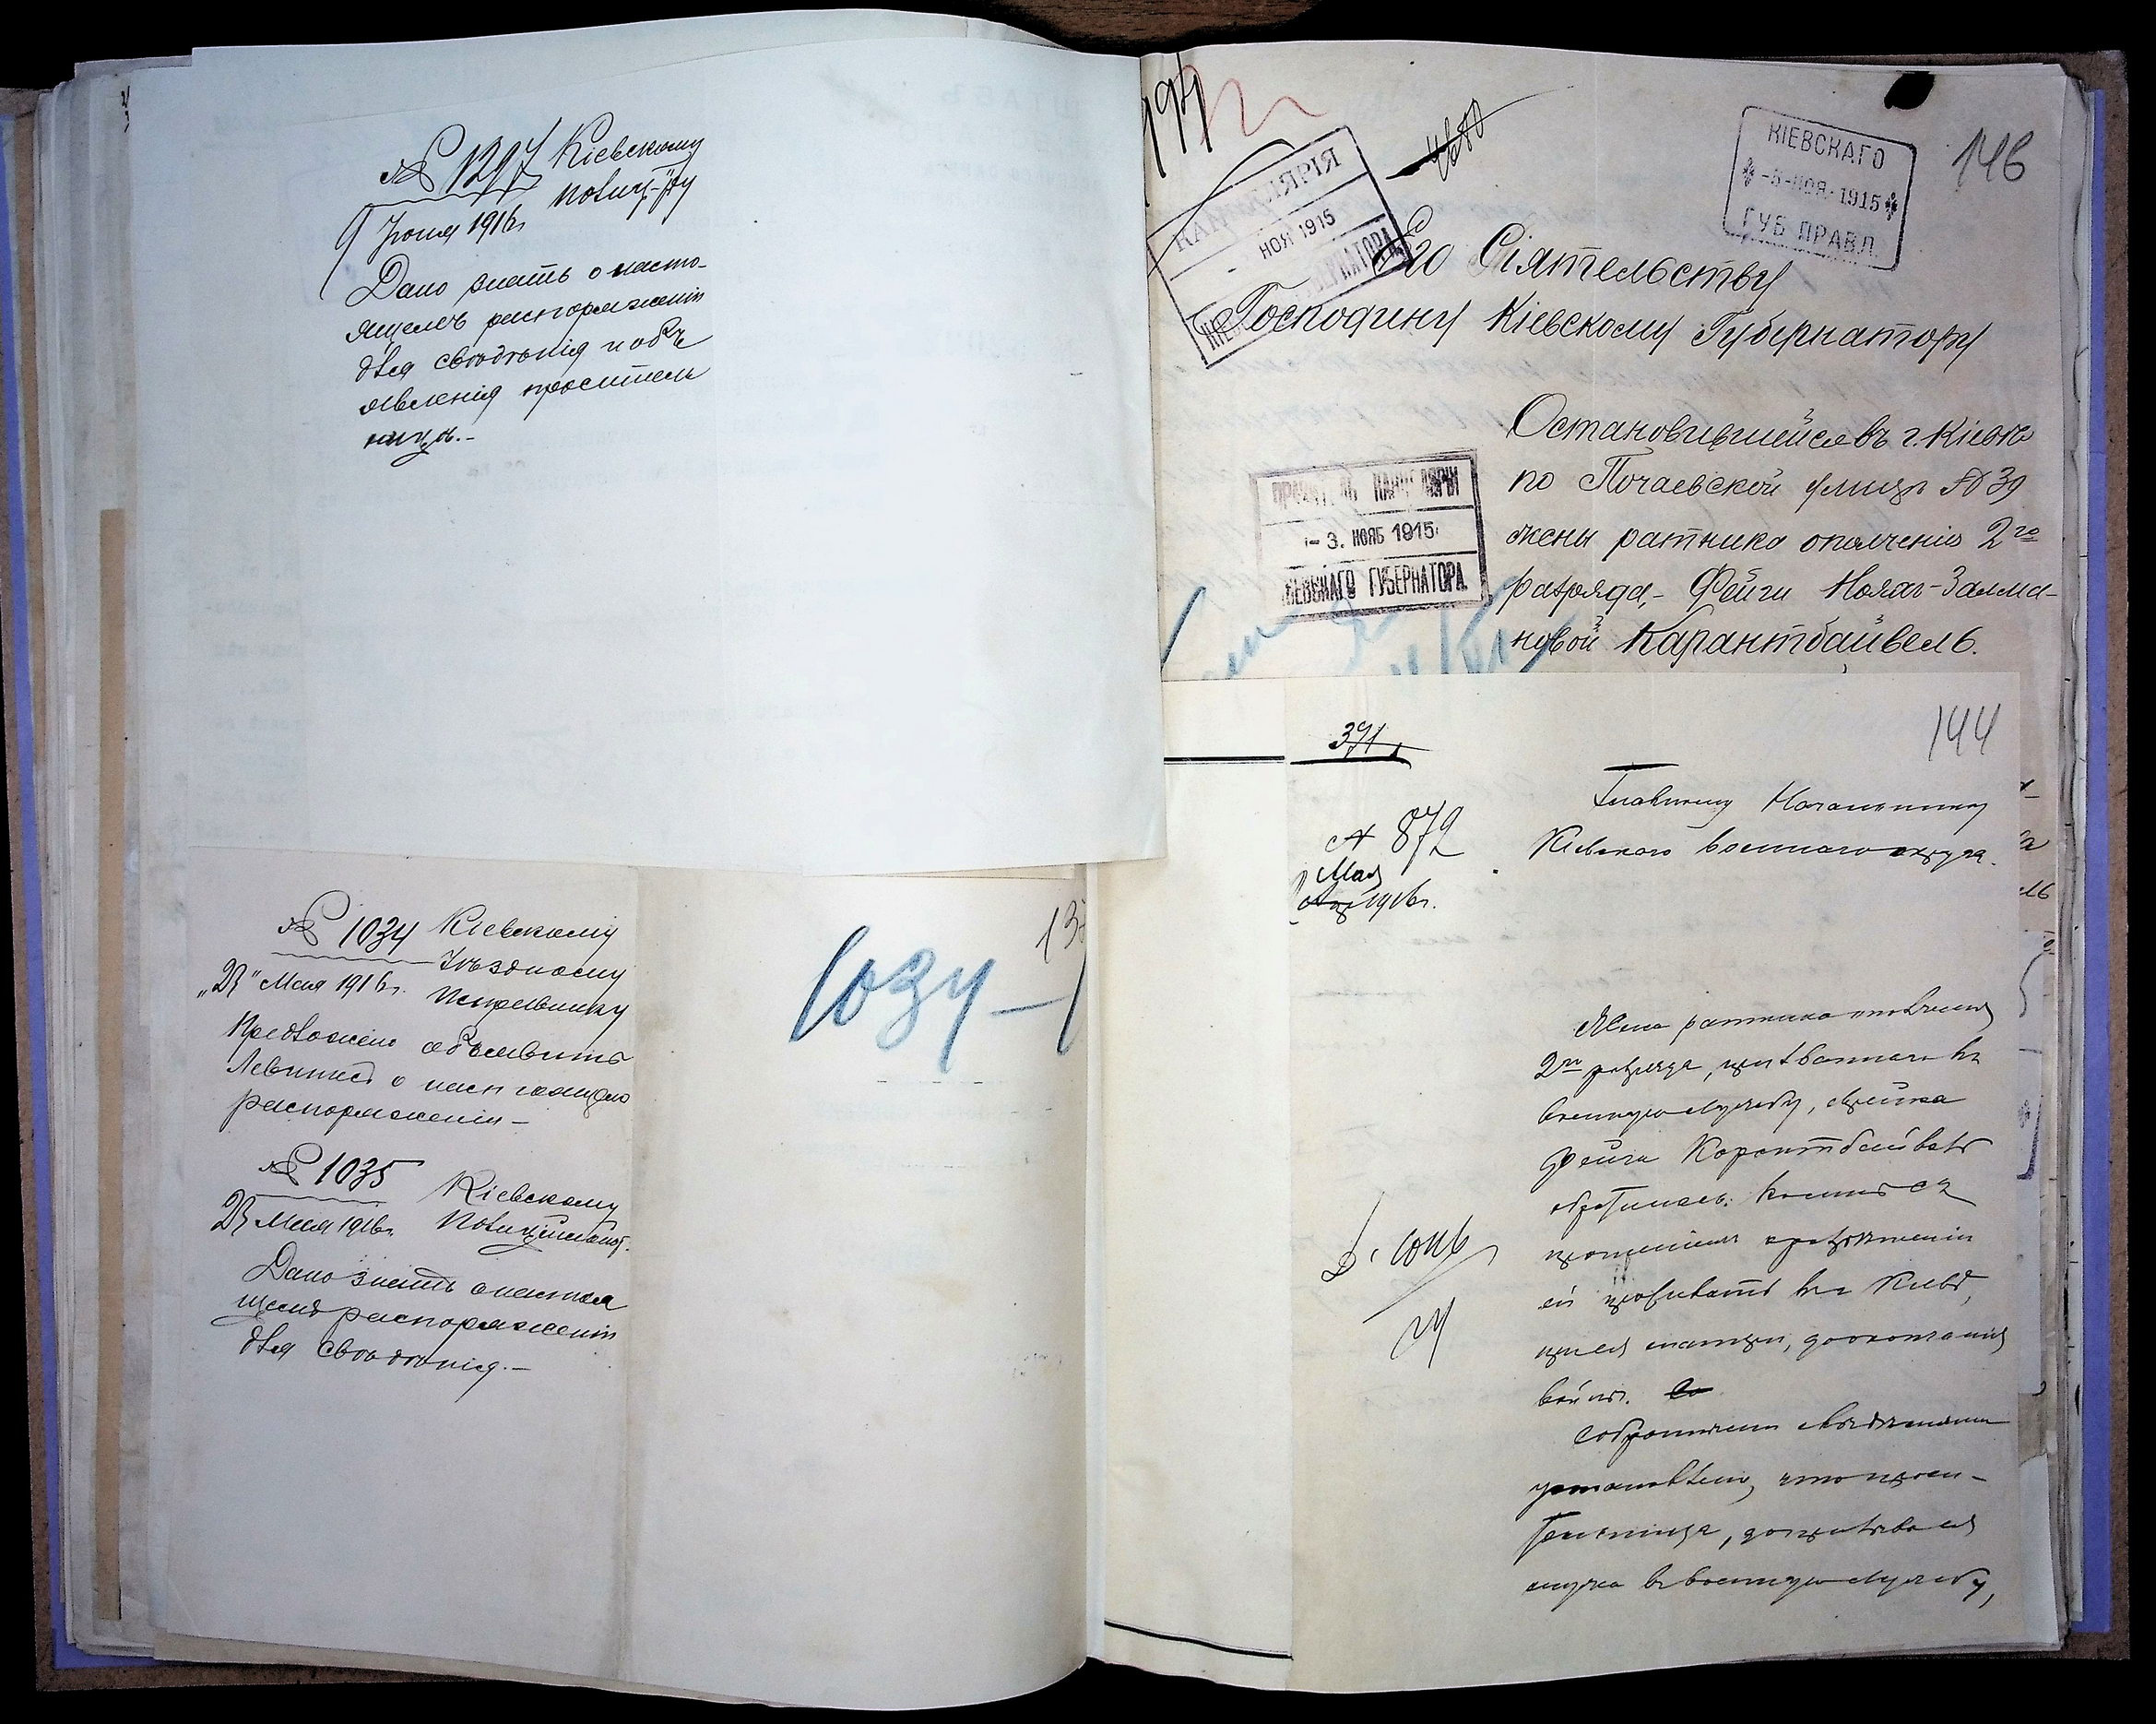 № 1297 Кіевскому
Полиц-ру
9 Іюня 1916 г.
Дано знать о насто-
ящемъ распоряженіи
для свѣдѣнія и объ
явленія проситель
ницѣ.-
№ 1034 Кіевскому
Уѣздному
„23" Мая 1916 г. Исправнику
Предложено объявить
о настоящемъ
распоряженіи -
№ 1035 Кіевскому
23 Мая 1916 г.
Дано знать о настоя
щемъ распоряженіи
для свѣдѣнія.-
1034-
146
КІЕВСКАГО
-5-НОЯ-1915
ГУБ ПРАВЛ.
КАНЦЕЛЯРІЯ
НОЯ 1915
Его Сіятельству
Господину Кіевскому Губернатору
Остановившейся въ г. Кіевѣ
по Почаевской улицѣ № 39
жены ратника ополченія 2го
разряда,- Фейги Залма-
новой Карантбайвель.
ПРАВИТЕЛЬ КАНЦЕЛЯРІИ
- 3. НОЯБ 1915
КІЕВСКАГО ГУБЕРНАТОРА.
144
391
Главному Начальнику
Кіевскаго военнаго округа.
№ 872
Мая
1916 г.
Жена ратника ополченія
2го разряда, призваннаго въ
военную службу, еврейка
Фейга Карантбайвель
обратилась ко мнѣ съ
прошеніемъ о разрѣшеніи
ей проживать въ Кіевѣ,
до окончанія
войны.
Собранными свѣдѣніями
установлено, что проси-
тельница,
мужа въ военную службу,